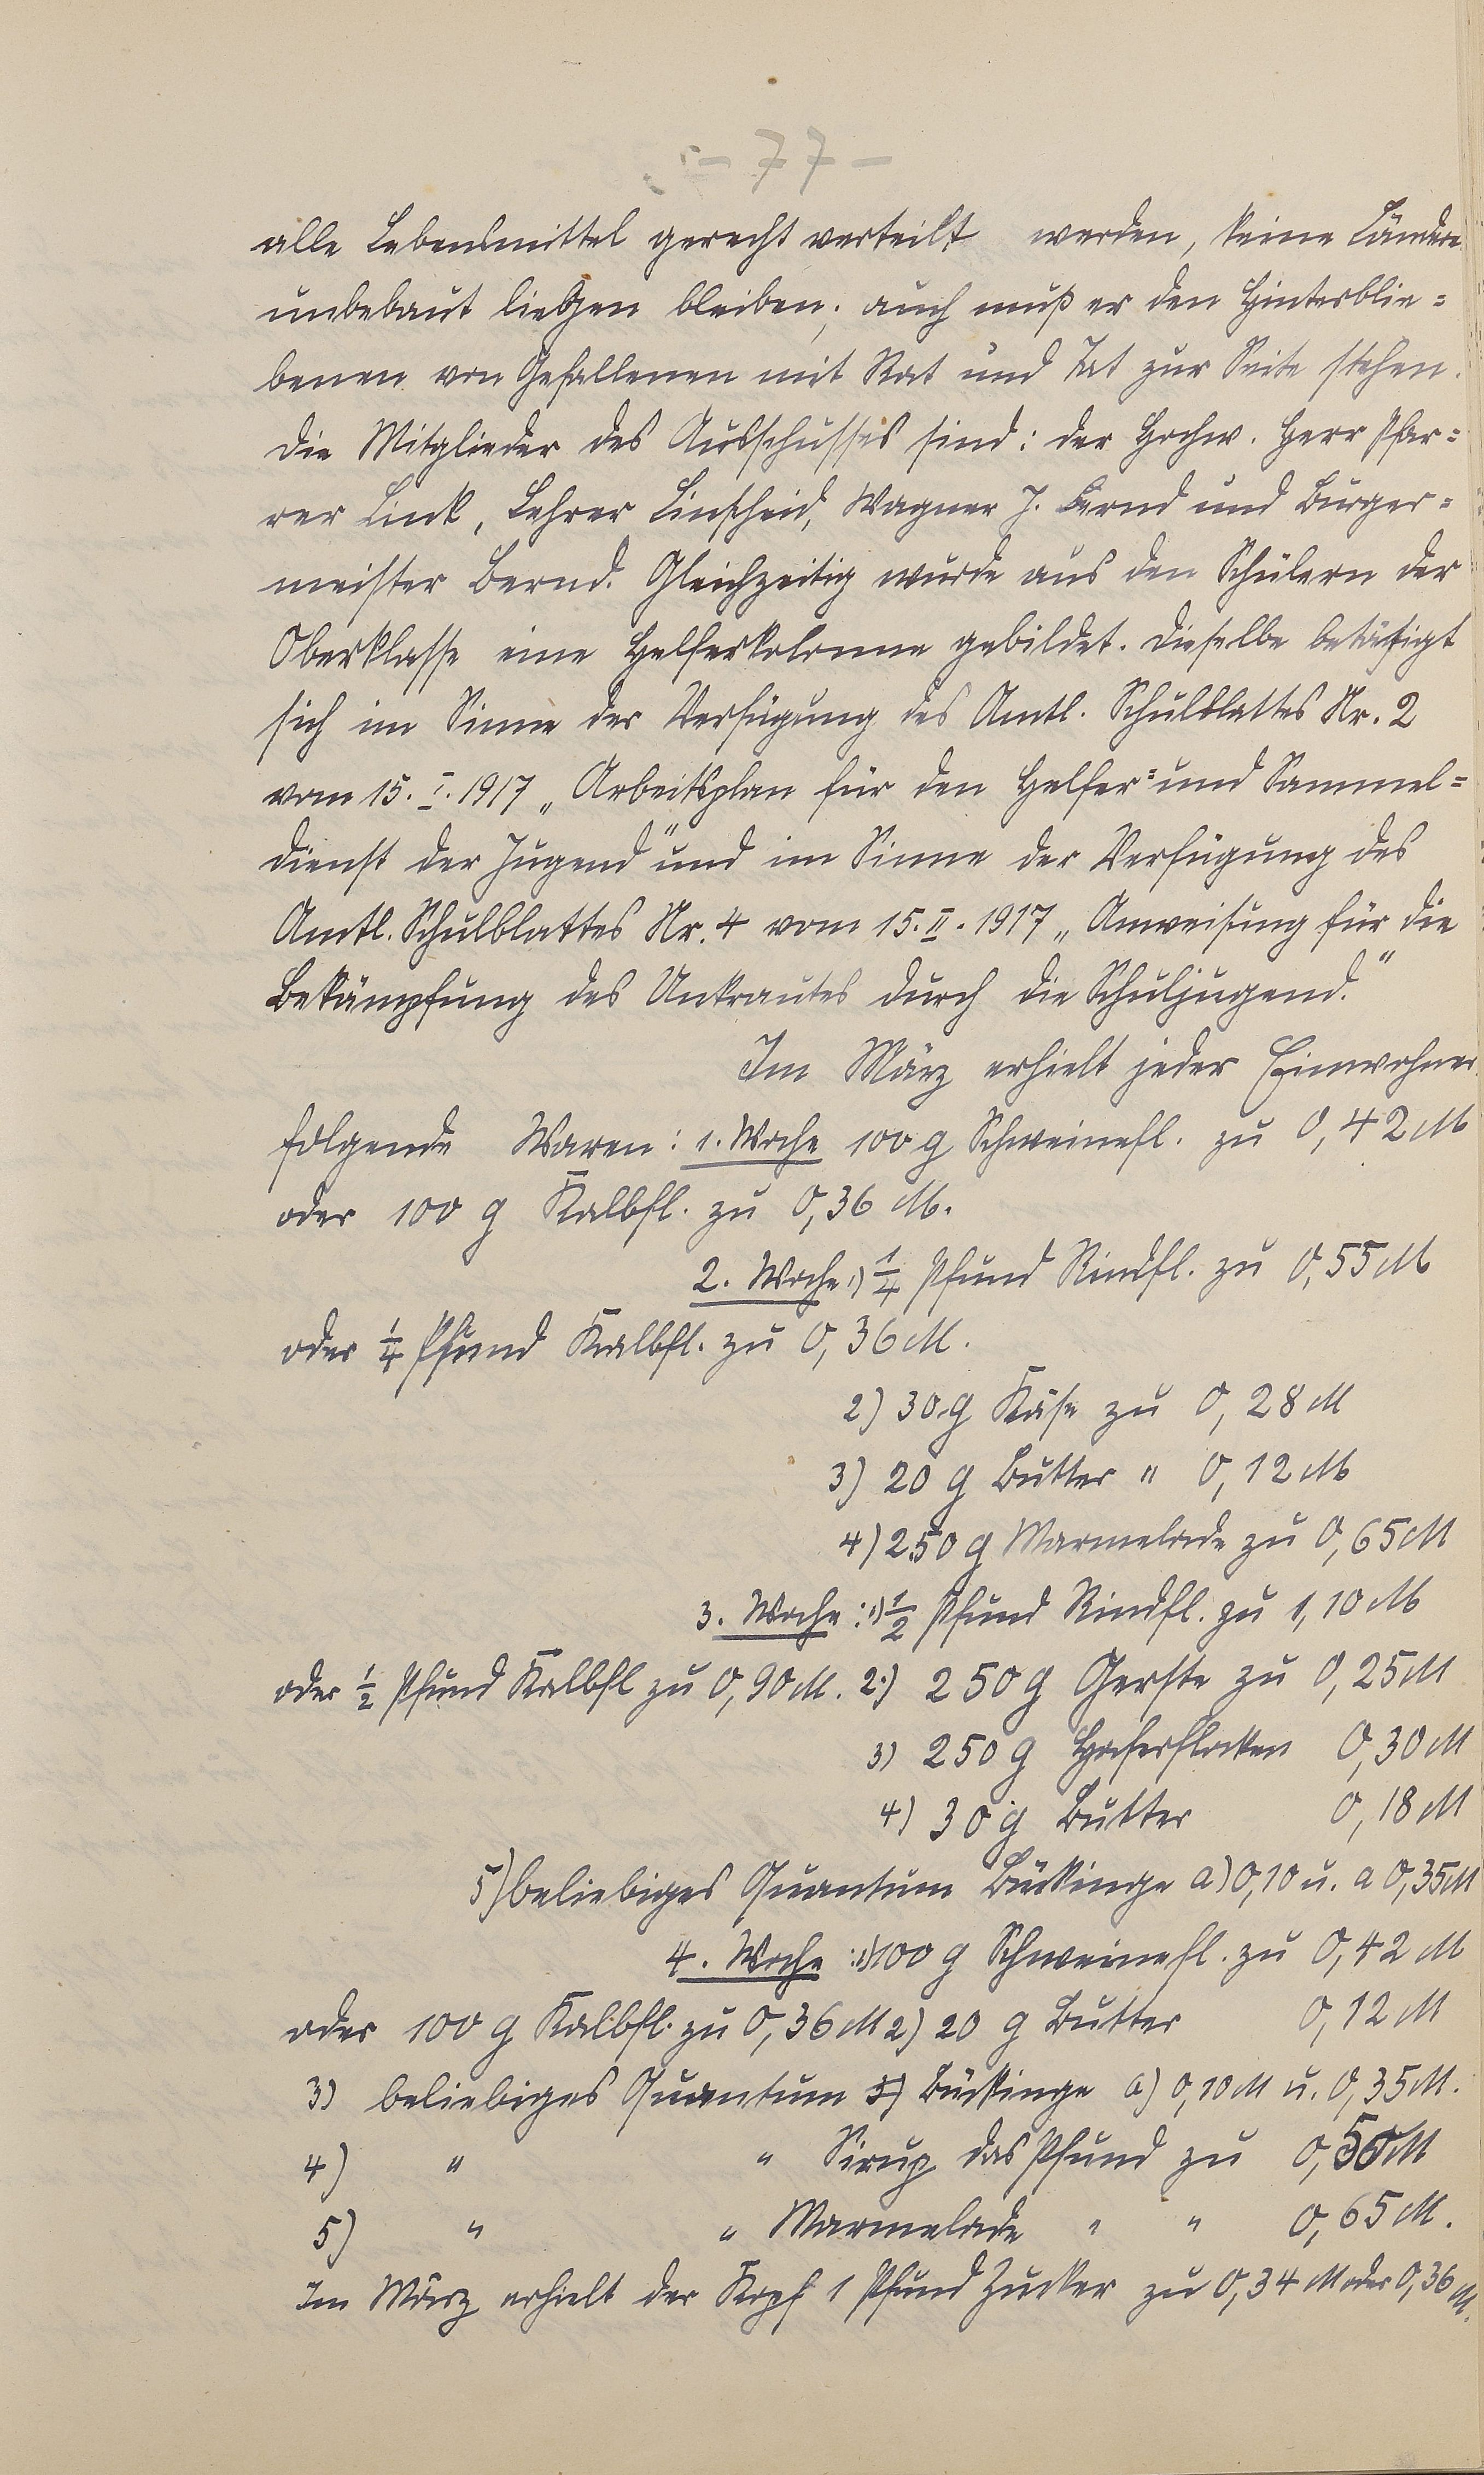 - 77 -
alle Lebensmittel gerecht verteilt werden, keine Länderei
unbebaut liegen bleiben; auch muß er den Hinterblie=
benen von Gefallenen mit Rat und Tat zur Seite stehen.
Die Mitglieder des Ausschusses sind: der Hochw. Herr Pfar=
rer Link, Lehrer Linscheid, Wagner J. Bernd und Bürger=
meister Bernd. Gleichzeitig wurde aus den Schülern der
Oberklasse eine Helferkolonne gebildet. Dieselbe betätigt
sich im Sinne der Verfügung des Amtl. Schulblattes Nr. 2
vom 15. I. 1917 „Arbeitsplan für den Helfer= und Sammel=
dienst der Jugend" und im Sinne der Verfügung des
Amtl. Schulblattes Nr. 4 vom 15. II. 1917 „Anweisung für die
Bekämpfung des Unkrautes durch die Schuljugend."
Im März erhielt jeder Einwohner
folgende Waren: 1. Woche 100 g Schweinefl. zu 0,42 M
oder 100 g Kalbfl. zu 0,36 M.
2. Woche 1) 1/4 Pfund Rindfl. zu 0,55 M
oder 1/4 Pfund Kalbfl. zu 0,36 M.
2) 30 g Käse zu 0,28 M
3) 20 g Butter " 0,12 M
4) 250 g Marmelade zu 0,65 M
3. Woche: 1) 1/2 Pfund Rindfl. zu 1,10 M
oder 1/2 Pfund Kalbfl zu 0,90 M. 2.) 250 g Gerste zu 0,25 M
3) 250 g Haferflocken 0,30 M
4) 30 g Butter 0,18 M
5) beliebiges Quantum Bückinge a) 0,10 u. a 0,35 M
4. Woche: 1) 100 g Schweinefl. zu 0,42 M
oder 100 g Kalbfl. zu 0,36 M 2) 20 g Butter 0,12 M
3) beliebiges Quantum Bückinge a) 0,10 M u. 0,35 M.
4) " " Sirup das Pfund zu 0,50 M
5) " " Marmelade " " 0,65 M.
Im März erhielt der Kopf 1 Pfund Zucker zu 0,34 M oder 0,36 M.